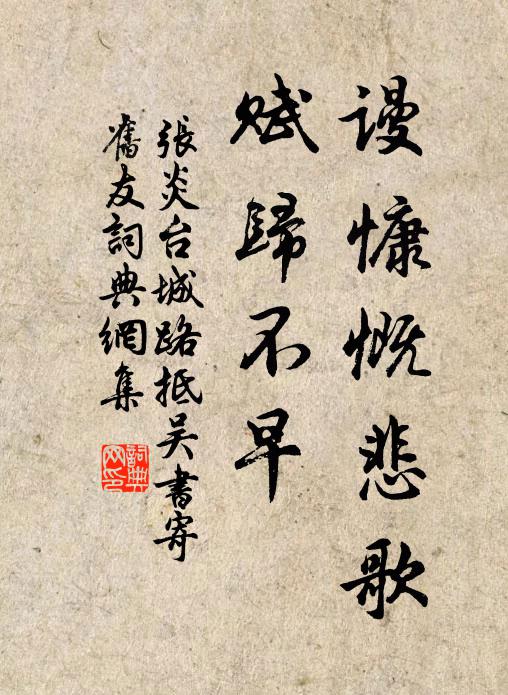 謾慷慨悲歌
賦歸不早
張炎台城路抵吴書寄
舊友詞典網集
詞典网印